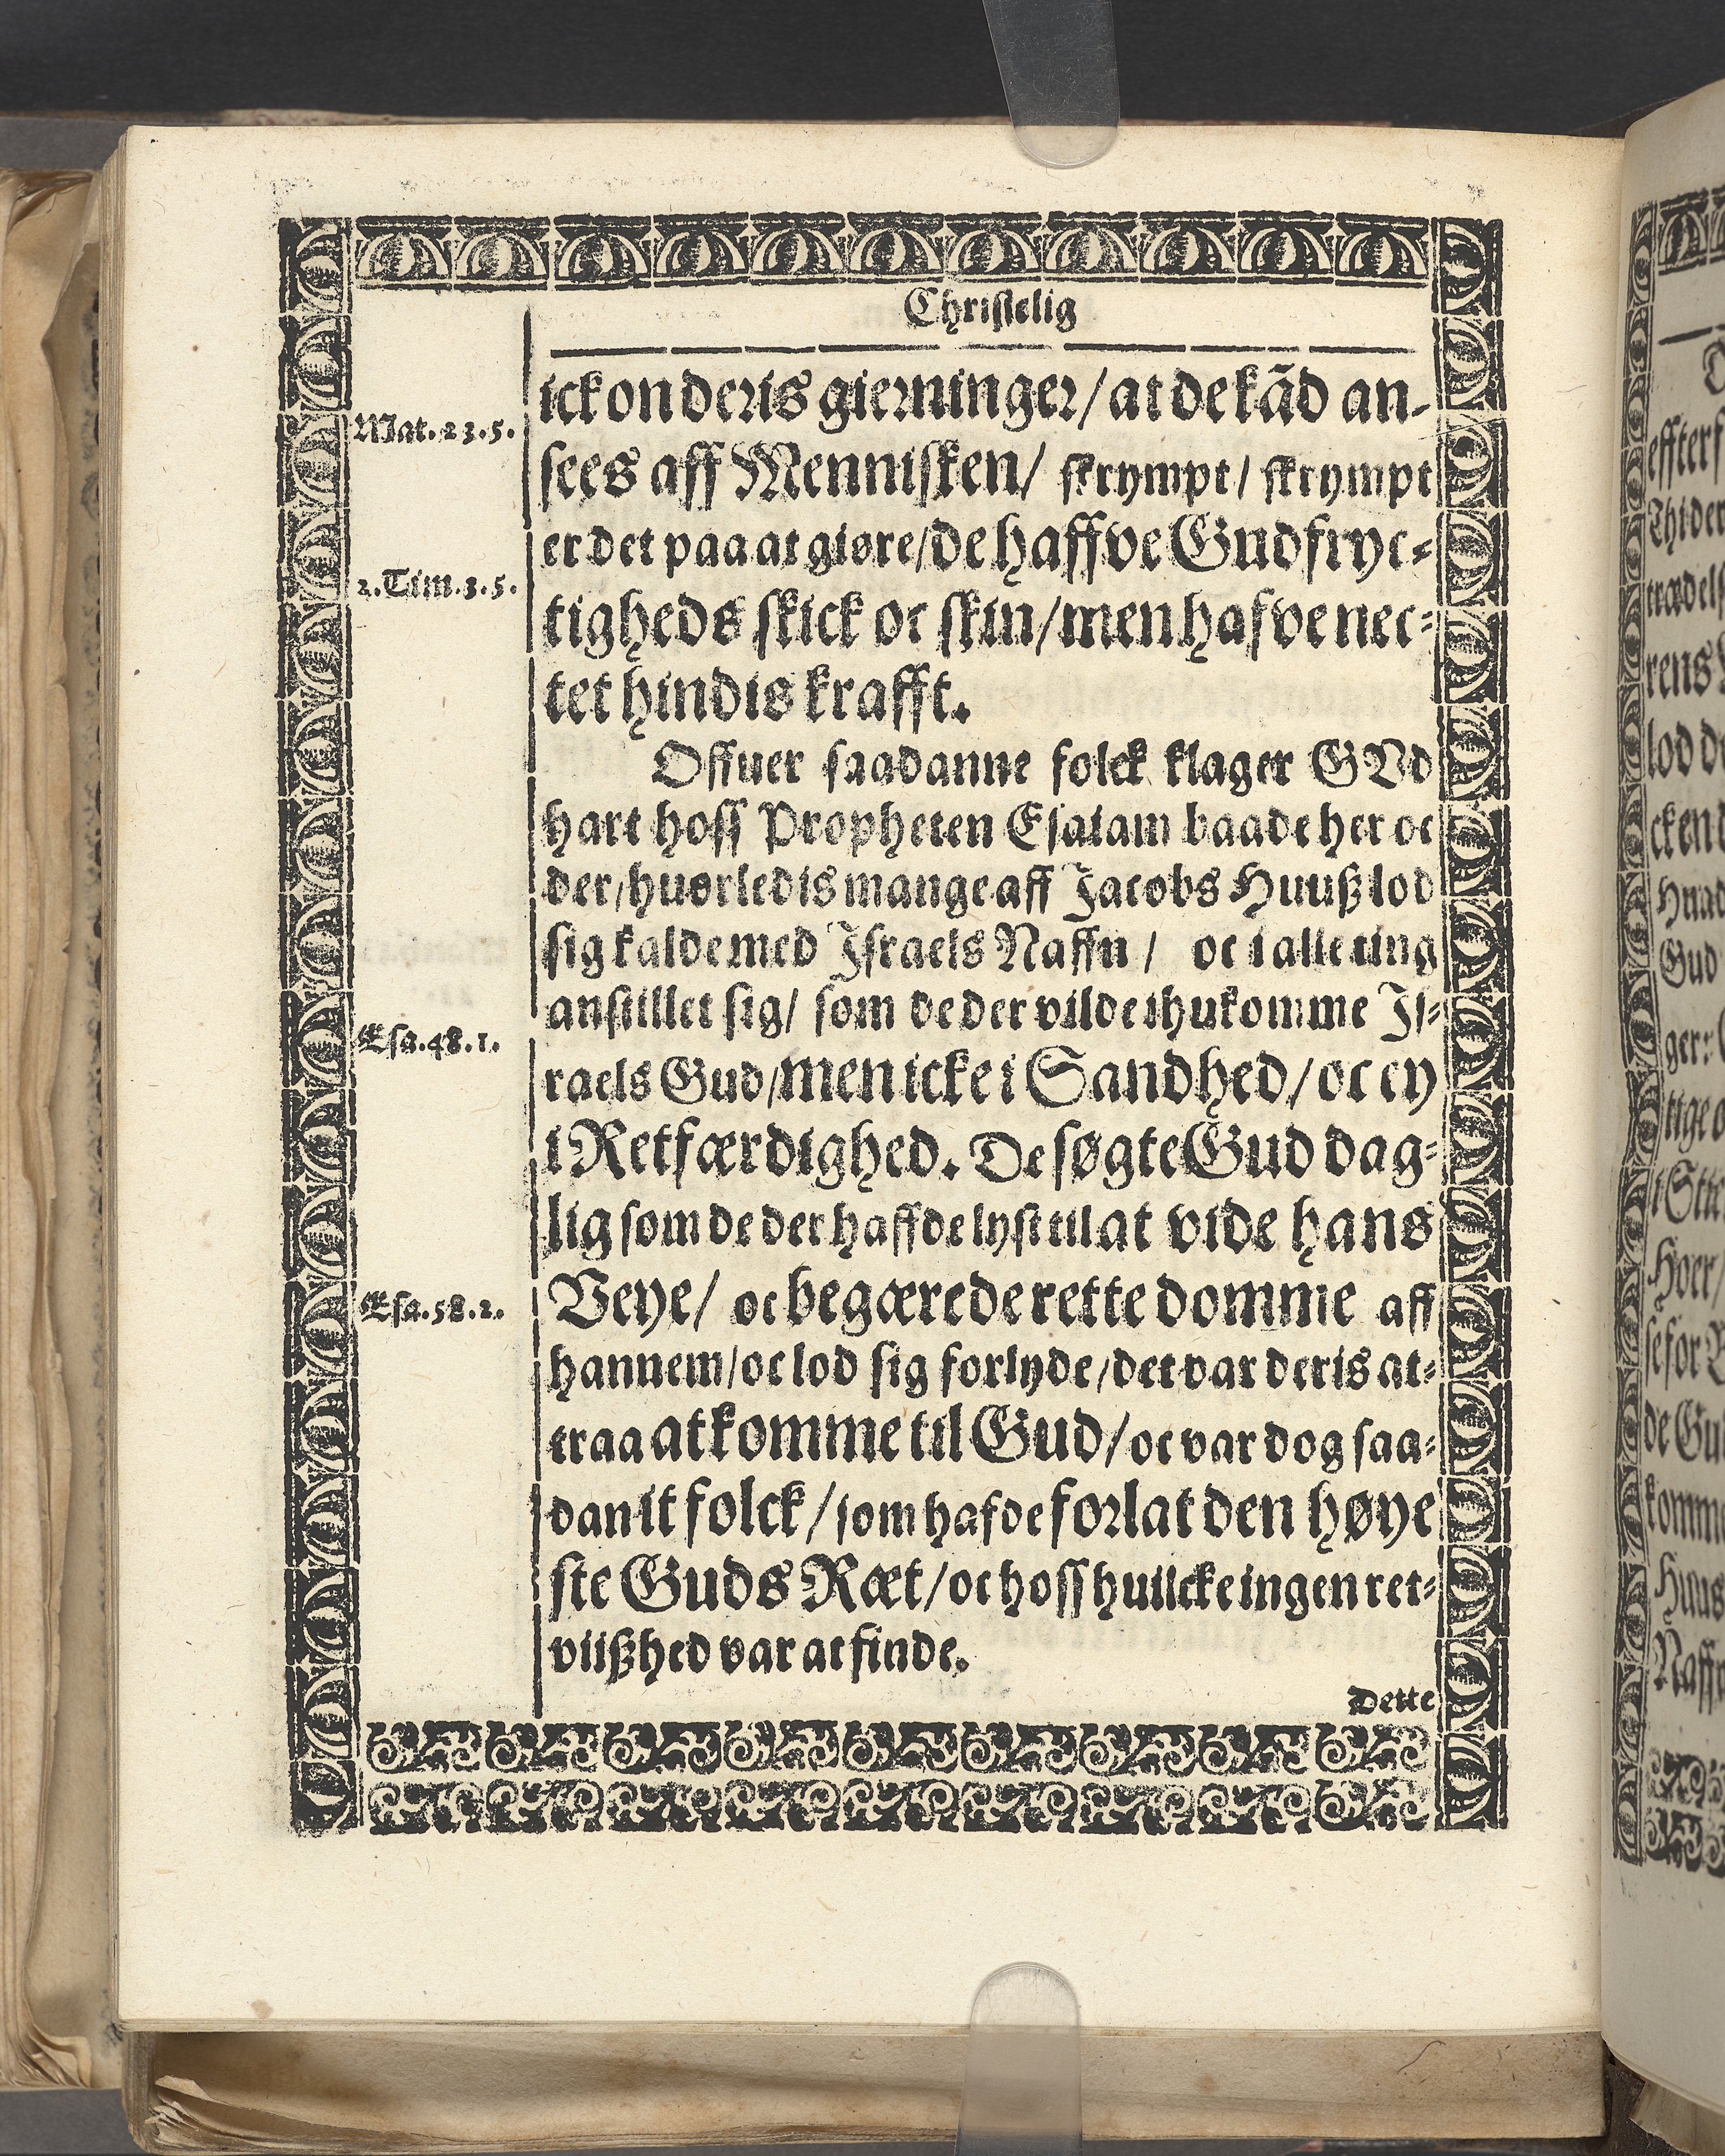 Christelig
ick on deris gierninger/ at de kãd an-
Mat. 23. 5.
sees aff Mennisken/ skrympt/ skrympt
er det paa at giøre/ de haffve Gudfryc-
2. Tim. 3. 5.
tigheds skick oc skin/ men hafve nec-
tet hindis krafft.
Offuer saadanne folck klager GVd
hart hoss Propheten Esaiam baade her oc
der/ huorledis mange aff Jacobs Huuß lod
sig kalde med Israels Naffn / oc i alle ting
anstillet sig/ som de der vilde ihukomme Is-
Esa. 48. 1.
raels Gud/ men icke i Sandhed/ oc ey
i Retfærdighed. De søgte Gud dag-
lig som de der haffde lyst til at vide hans
Esa. 58. 2.
Veye/ oc begærede rette domme aff
hannem/ oc lod sig forlyde/ det var deris at-
traa at komme til Gud/ oc var dog saa-
dan it folck/ som hafde forlat den høye
ste Guds Ræt/ oc hoss huilcke ingen ret-
viißhed var at finde.
Dette